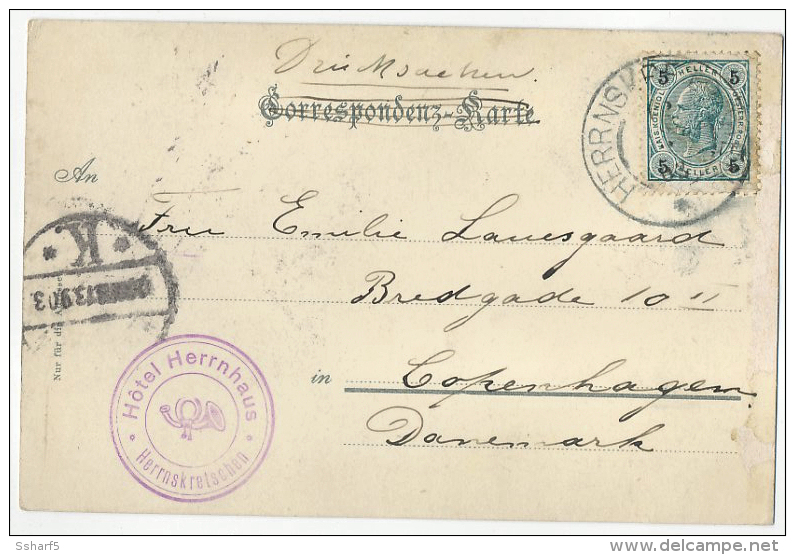 Drucksachen.
Correspondenz-Karte
HERRNSKRE
5 HELLER 5
5 HELLER 5
An
Fru Emilie Lauesgaard
Bredgade 10 II
in Copenhagen.
Danemark
* K. *
13 9 03
Nur für die Adresse
Hôtel Herrnhaus
Herrnskretschen
Ssharf5
www.delcampe.net